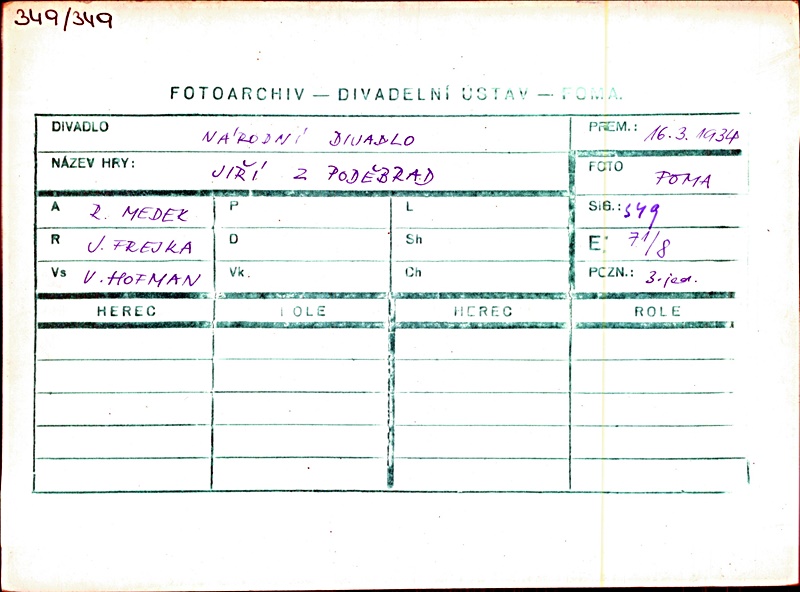 349/349
FOTOARCHIV — DIVADELNÍ ÚSTAV — FOMA.
DIVADLO NÁRODNÍ DIVADLO PREM.: 16.3.1934
NÁZEV HRY: JIŘÍ Z PODĚBRAD FOTO FOMA
A R. MEDEK P L SIG.: 349
R J. FREJKA D Sh E: 71/8
Vs V. HOFMAN Vk. Ch POZN.: 3. jed.
HEREC ROLE HEREC ROLE